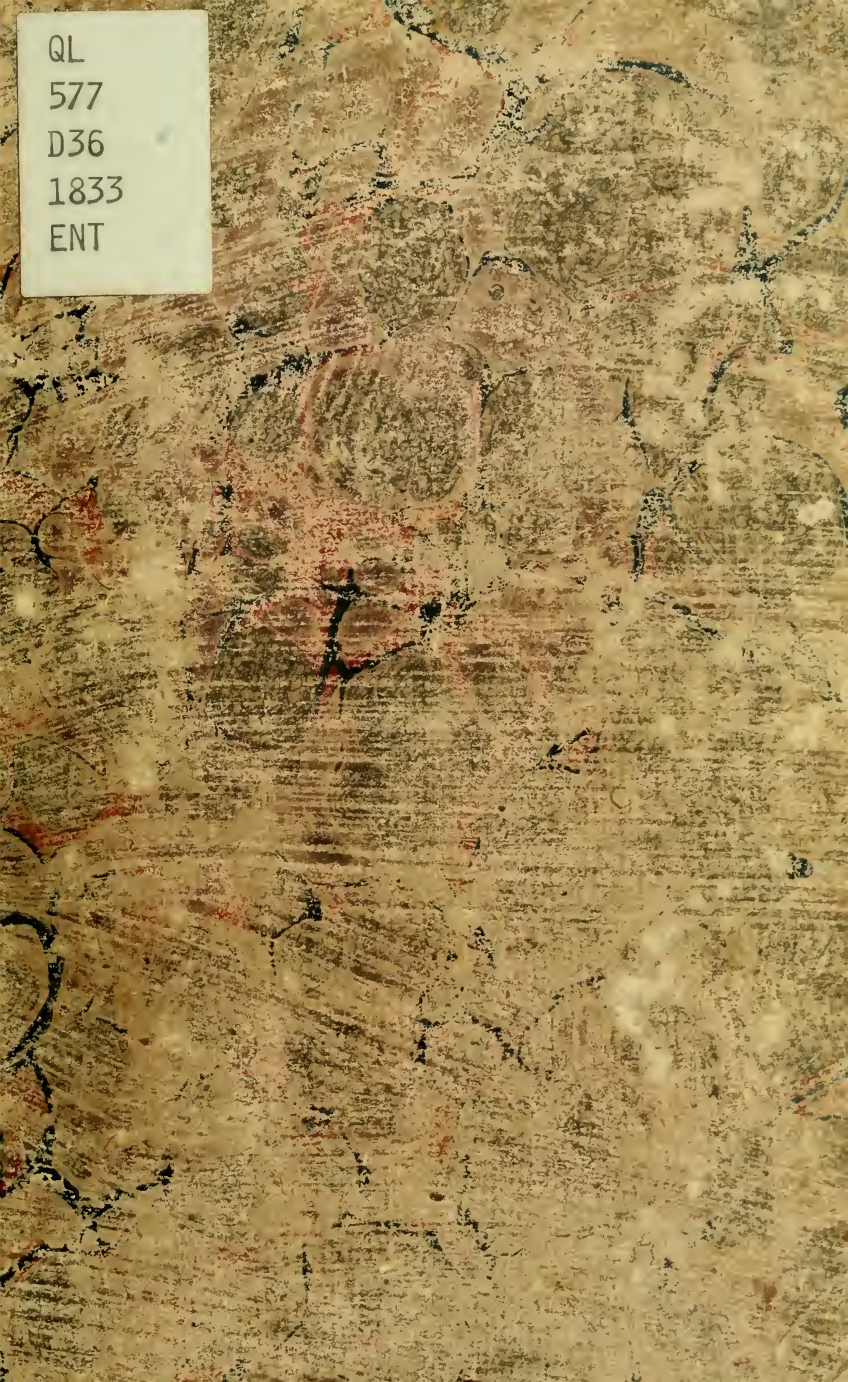 QL
577
D36
1833
ENT